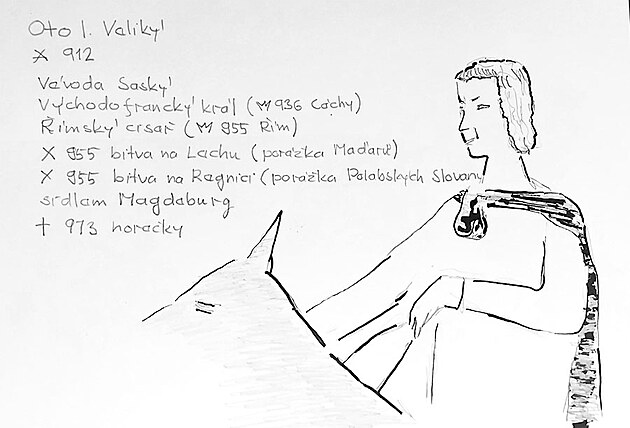 Oto I. Valiký
✕ 912
Vévoda Saský
Východofrancký král (♔ 936 Cáchy)
Římský císař (♔ 955 Řím)
✕ 955 bitva na Lechu (porážka Maďarů)
✕ 955 bitva na Regnici (porážka Polobských Slovanů)
sídlem Magdeburg
✝ 973 horečky